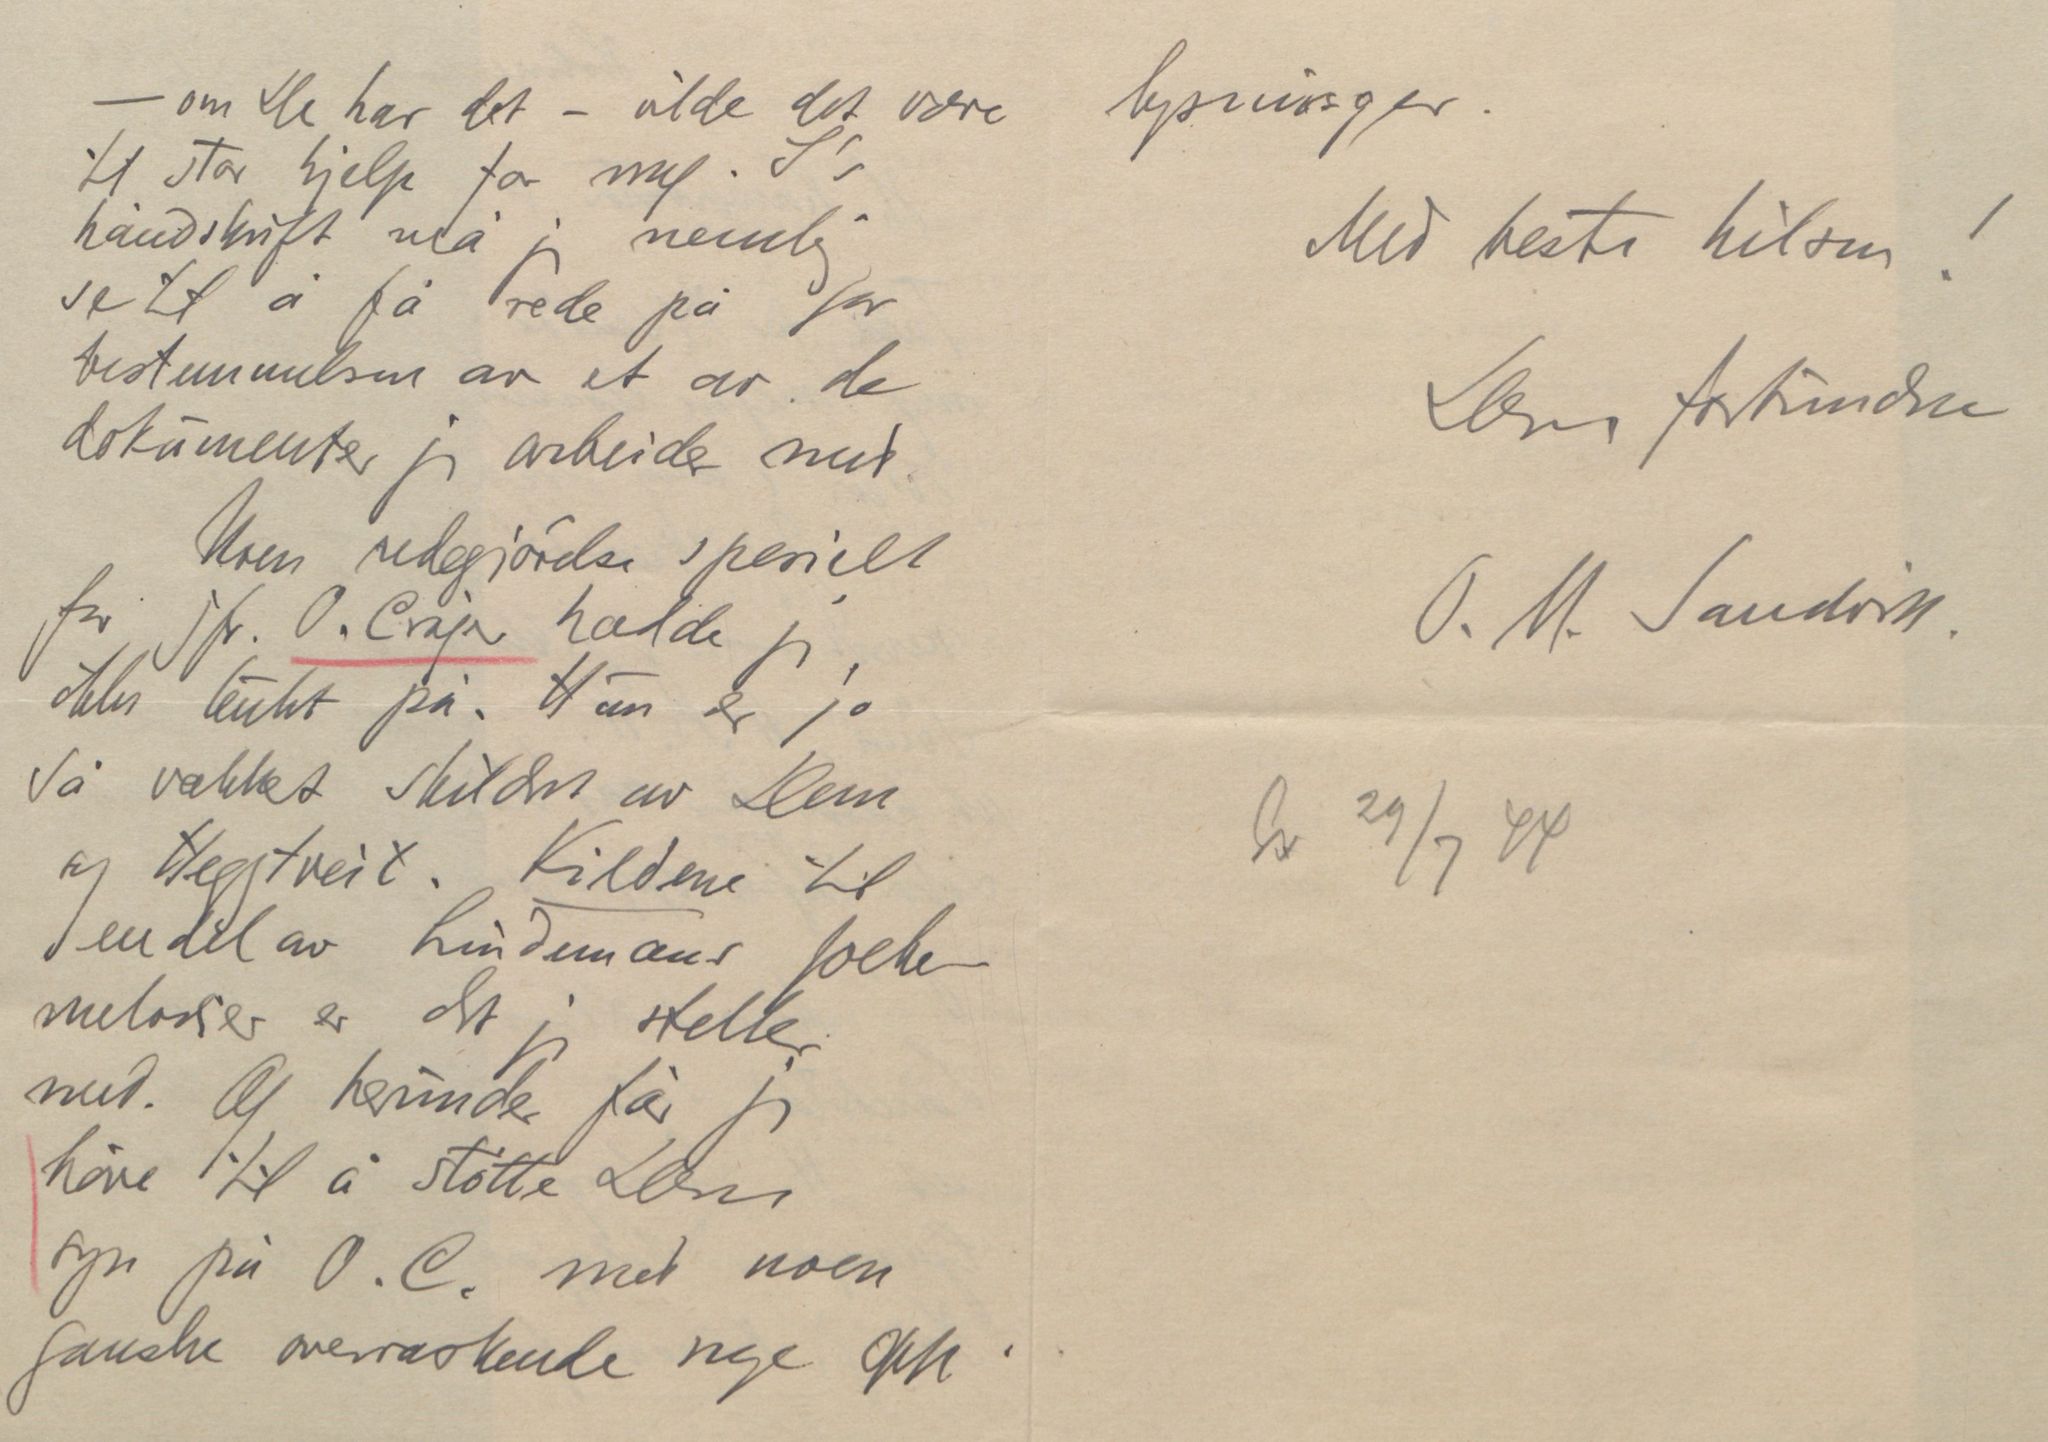 — om De har det – vilde det være
til stor hjelp for meg. S's
håndskrift må jeg nemlig
se til å få rede på for
bestemmelsen av et av de
dokumenter jeg arbeider med.
Noen redegjörelse specielt
for jfr. O. Cröger hadde jeg
ikke tenkt på. Hun er jo
så vakket skildret av Dem
og Hegtveit. Kildene til
en del av Lindemans folke-
melodier er det jeg steller
med. Og herunder får jeg
höve til å stötte Deres
syn på O. C. med noen
ganske overraskende nye opp-
lysninger.
Med beste hilsen!
Deres forbundne
O. M. Sandvik.
29/7 44